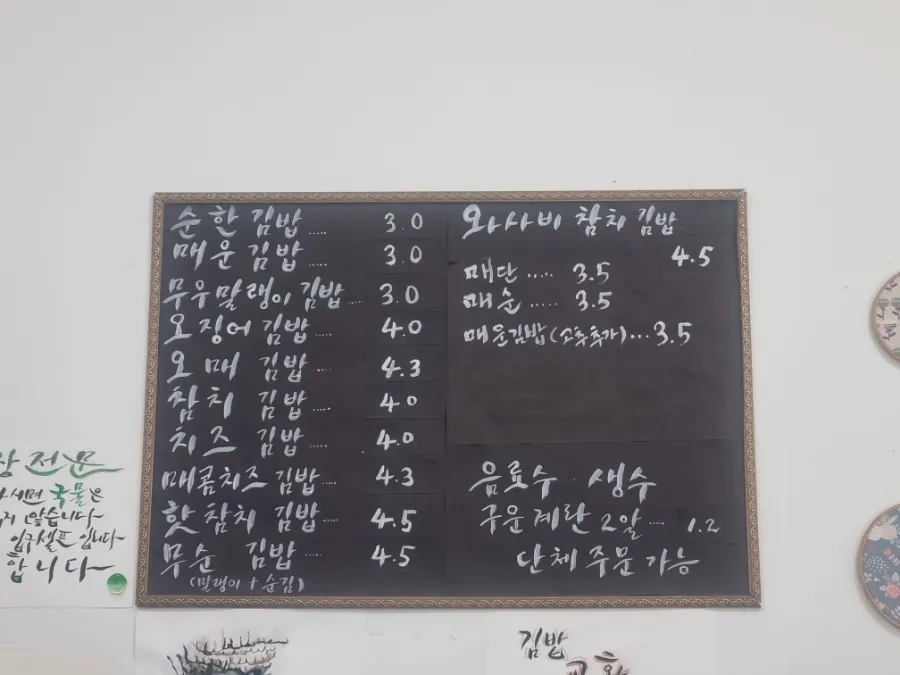 순한 김밥 ..... 3.0
매운 김밥 ..... 3.0
무우말랭이 김밥 .... 3.0
오징어 김밥 ..... 4.0
오매 김밥 .... 4.3
참치 김밥 ..... 4.0
치즈 김밥 ..... 4.0
매콤치즈 김밥 .... 4.3
핫참치 김밥 ..... 4.5
무순 김밥 .... 4.5
(말랭이 + 순김)
와사비 참치 김밥
4.5
매단 ..... 3.5
매순 ..... 3.5
매운김밥(소추추가)... 3.5
음료수 생수
구운계란 2알 .... 1.2
단체 주문 가능
전문
국물은
않습니다
입구셀프 입니다
합니다
김밥